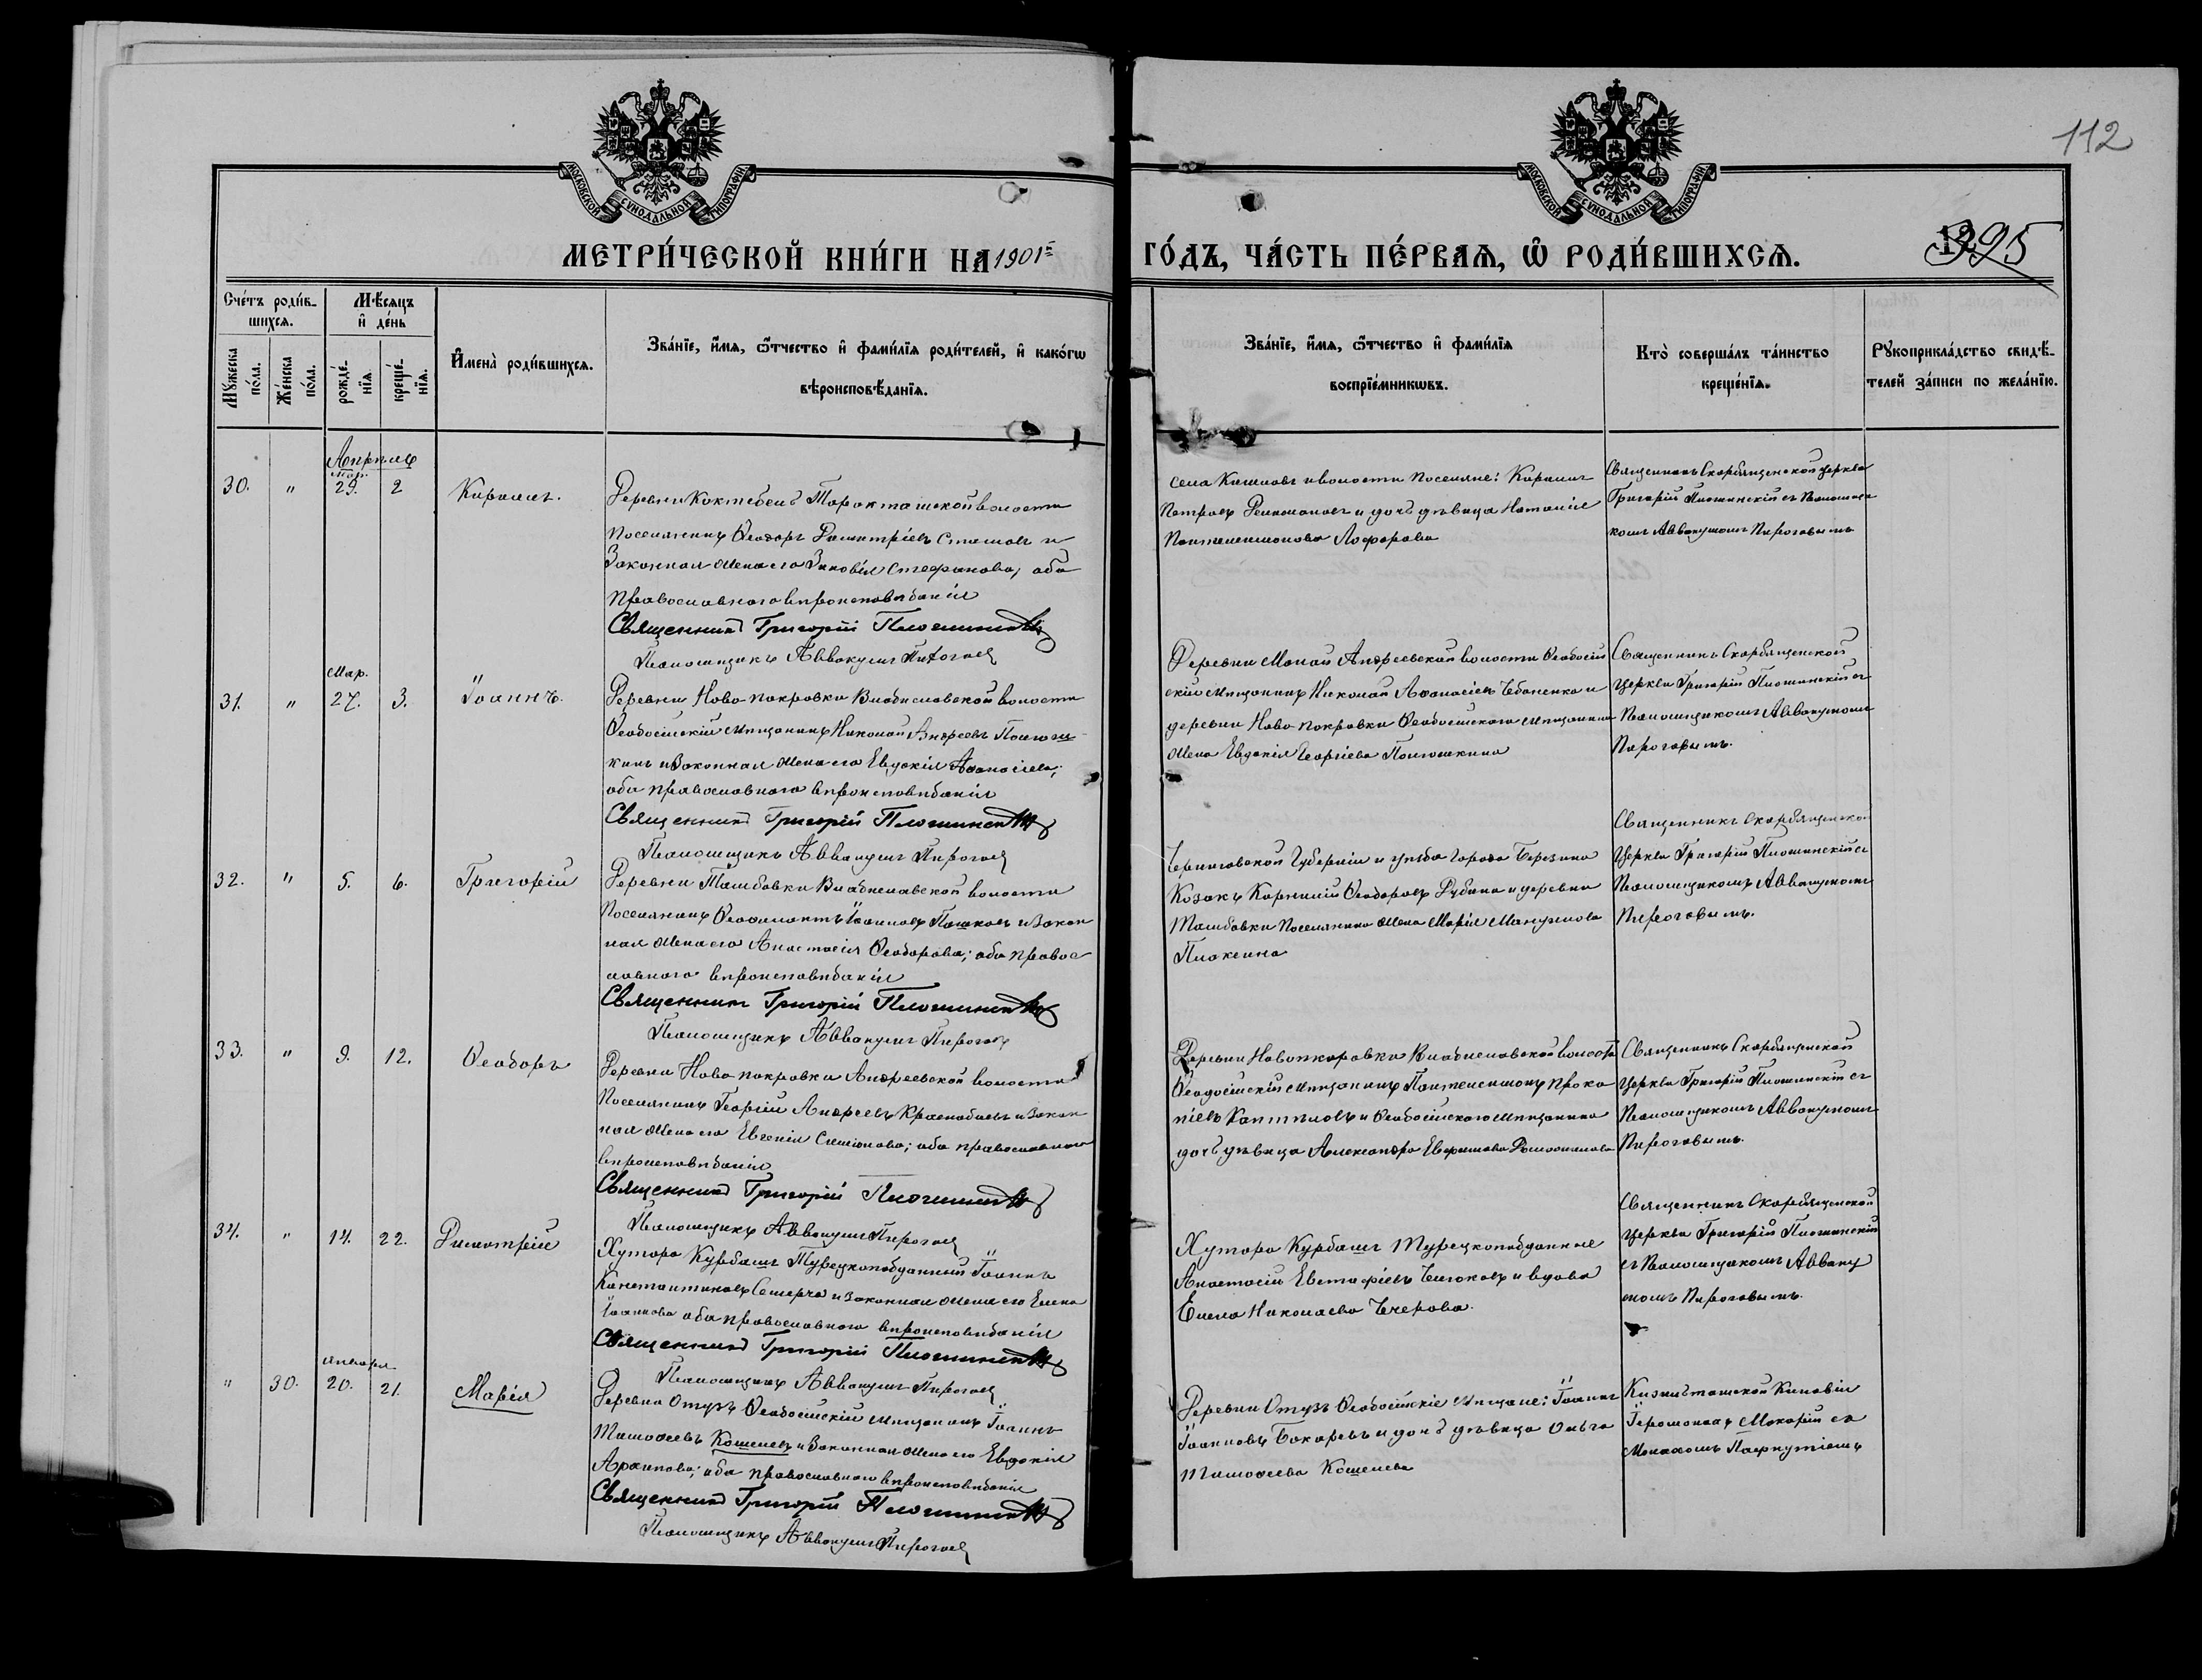 112
МОСКОВСКОЙ СУНОДАЛЬНОЙ ТИПОГРАФІИ
МОСКОВСКОЙ СУНОДАЛЬНОЙ ТИПОГРАФІИ
395
МЕТРИ́ЧЕСКОЙ КНИ́ГИ НА 1901й ГО́ДЪ, ЧА́СТЬ ПЕ́РВАЯ, Ѡ РОДИ́ВШИХСЯ.
Сче́тъ роди́вшихся.
Мꙋ́жеска по́ла.
Же́нска по́ла.
Мѣ́сяцъ и де́нь
рожде́нїя.
креще́нїя.
И҆мена̀ роди́вшихся.
Зва́нїе, и҆́мя, ѻ҆́тчество и҆ фами́лїя роди́телей, и҆ како́гѡ
вѣроисповѣ́данїя.
Зва́нїе, и҆́мя, ѻ҆́тчество и҆ фами́лїя
воспрїе́мникѡвъ.
Кто̀ соверша́лъ та́инство
креще́нїя.
Рꙋкоприкла́дство свидѣ́телей за́писи по жела́нїю.
Апрѣль
30. " Мар. 29. 2 Кириллъ.
Деревни Коктебель Таракташской волости
поселянинъ Ѳеодоръ Димитріевъ Стамовъ и
законная жена его Зиновія Стефанова; оба
православнаго вѣроисповѣданія
Священникъ Григорій
Псаломщикъ Аввакумъ Пироговъ
волости поселяне: Кириллъ
Петровъ и дочь дѣвица Наталія
Пантелеимонова
Священникъ Скорбященской церкви
Григорій съ Псаломщи
комъ Аввакумомъ Пироговымъ
31. " Мар. 27. 3. Іоаннъ.
Деревни Ново-покровки Владиславской волости
Ѳеодосійскій мѣщанинъ Николай Андреевъ
кинъ и законная жена его Евдокія Аѳанасіева;
оба православнаго вѣроисповѣданія
Священникъ Григорій
Псаломщикъ Аввакумъ Пироговъ
Деревни Андреевской волости Ѳеодосій
скій мѣщанинъ Николай Аѳанасіевъ и
деревни Ново-покровки Ѳеодосійскаго мѣщанина
жена Евдокія Георгіева
Священникъ Скорбященской
церкви Григорій съ
Псаломщикомъ Аввакумомъ
Пироговымъ.
32. " 5. 6. Григорій
Деревни Ташбовки Владиславской волости
поселянинъ Іоанновъ и закон
ная жена его Анастасія Ѳеодорова; оба правос
лавнаго вѣроисповѣданія
Священникъ Григорій
Псаломщикъ Аввакумъ Пироговъ
Черниговской губерніи и уѣзда города Березина
Козакъ Корнилій Ѳеодоровъ и деревни
Ташбовки поселянина жена Марія
Священникъ Скорбященской
церкви Григорій съ
Псаломщикомъ Аввакумомъ
Пироговымъ.
33. " 9. 12. Ѳеодоръ
Деревни Ново-покровки Андреевской волости
поселянинъ Георгій Андреевъ и закон
ная жена его Евгенія Симіонова; оба православнаго
вѣроисповѣданія
Священникъ Григорій
Псаломщикъ Аввакумъ Пироговъ
Деревни Новопокровки Владиславской волости
Ѳеодосійскій мѣщанинъ Пантелеимонъ Проко
піевъ и Ѳеодосійскаго мѣщанина
дочь дѣвица Александра
Священникъ Скорбященской
церкви Григорій съ
Псаломщикомъ Аввакумомъ
Пироговымъ.
34. " 14. 22. Димитрій
Хутора Курбашъ Турецкоподданный Іоаннъ
Константиновъ и законная жена его Елена
Іоаннова оба православнаго вѣроисповѣданія
Священникъ Григорій
Псаломщикъ Аввакумъ Пироговъ
Хутора Курбашъ Турецкоподданные
Анастасій Евстафіевъ и вдова
Елена Николаева
Священникъ Скорбященской
церкви Григорій
съ Псаломщикомъ Авваку
момъ Пироговымъ.
" 30. января 20. 21. Марія
Деревни Отузъ Ѳеодосійскій мѣщанинъ Іоаннъ
Тимоѳеевъ Кошелевъ и законная жена его Евдокія
Архипова; оба православнаго вѣроисповѣданія
Священникъ Григорій
Псаломщикъ Аввакумъ Пироговъ
Деревни Отузъ Ѳеодосійскіе мѣщане: Іоаннъ
Іоанновъ Бокаревъ и дочь дѣвица Ольга
Тимоѳеева Кошелева
Кизильташской Киновіи
Іеромонахъ Макарій съ
Монахомъ Пафнутіемъ